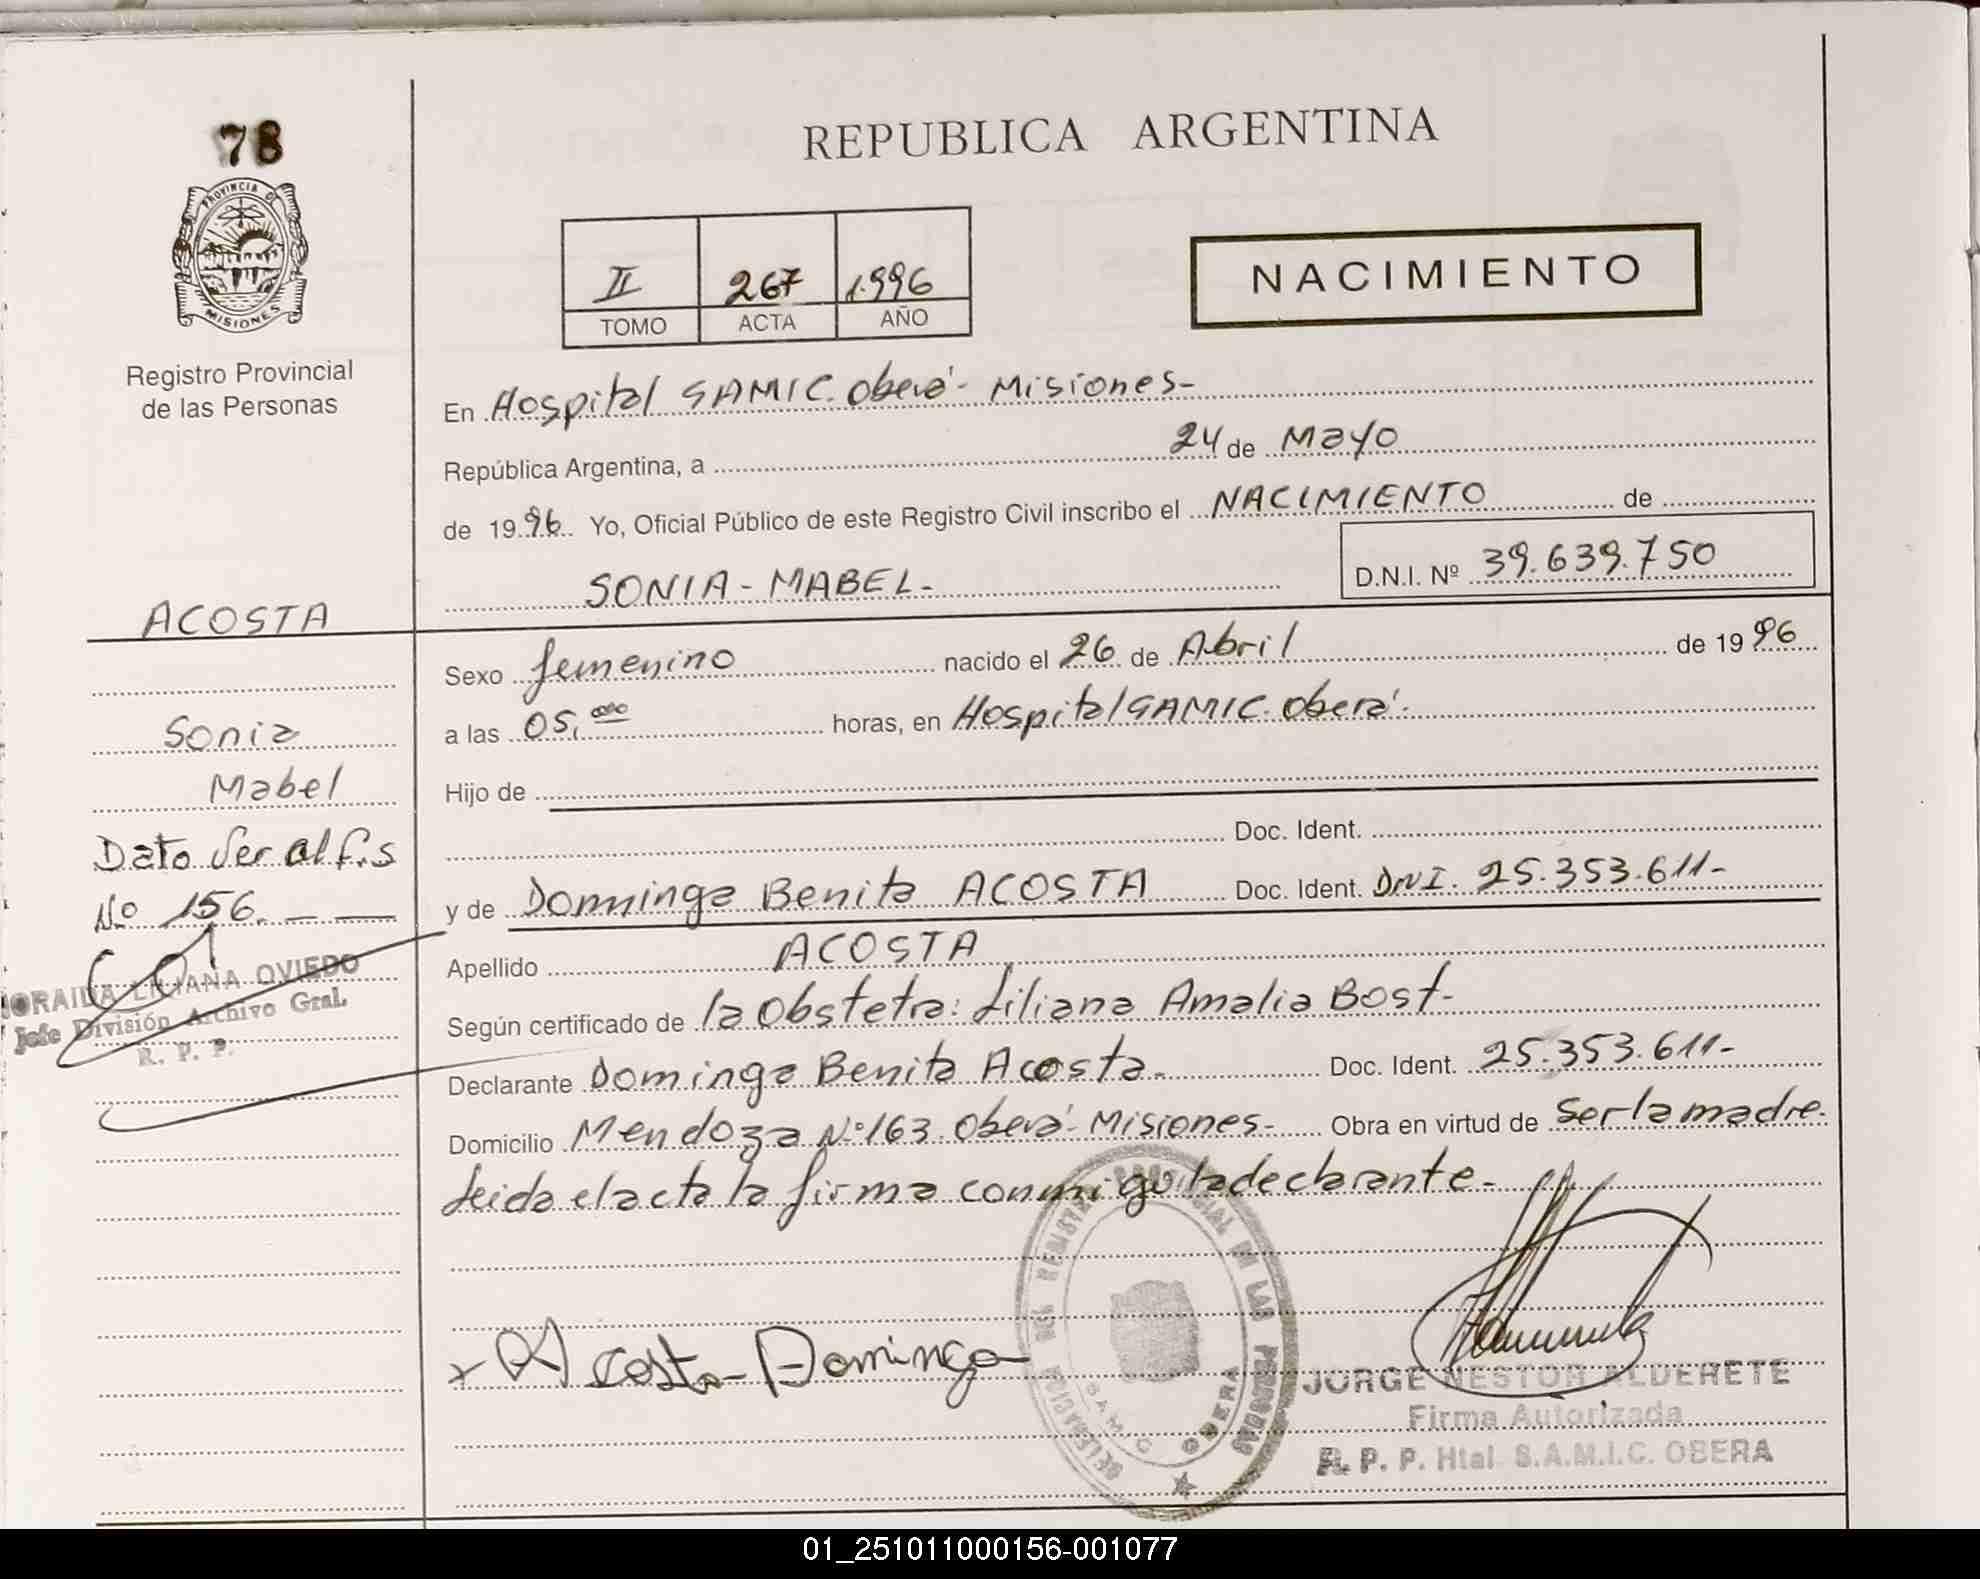 78
PROVINCIA DE
MISIONES
Registro Provincial
de las Personas
REPUBLICA ARGENTINA
II 267 1.996
TOMO ACTA AÑO
NACIMIENTO
En Hospital SAMIC. Oberá- Misiones-
República Argentina, a 24 de Mayo
de 1996 Yo, Oficial Público de este Registro Civil inscribo el NACIMIENTO de
SONIA-MABEL- D.N.I. Nº 39.639.750
ACOSTA
Sonia
Mabel
Dato Ver al f.s
Nº 156. - -
LILIANA OVIEDO
Jefe División Archivo Gral.
R. P. P.
Sexo femenino nacido el 26 de Abril de 1996
a las 05,000 horas, en Hospital SAMIC. Oberá.
Hijo de
Doc. Ident.
y de Dominga Benita ACOSTA Doc. Ident. DNI. 25.353.611-
Apellido ACOSTA
Según certificado de la Obstetra: Liliana Amalia Bost-
Declarante Dominga Benita Acosta- Doc. Ident. 25.353.611-
Domicilio Mendoza Nº 163. Oberá- Misiones- Obra en virtud de Ser la madre.
Leida el acta la firma conmigo la declarante-
x Acosta-Dominga
DELEGACION DEL REGISTRO PROVINCIAL DE LAS PERSONAS
SAMIC OBERA
JORGE NESTOR ALDERETE
Firma Autorizada
R. P. P. Htal S.A.M.I.C. OBERA
01_251011000156-001077